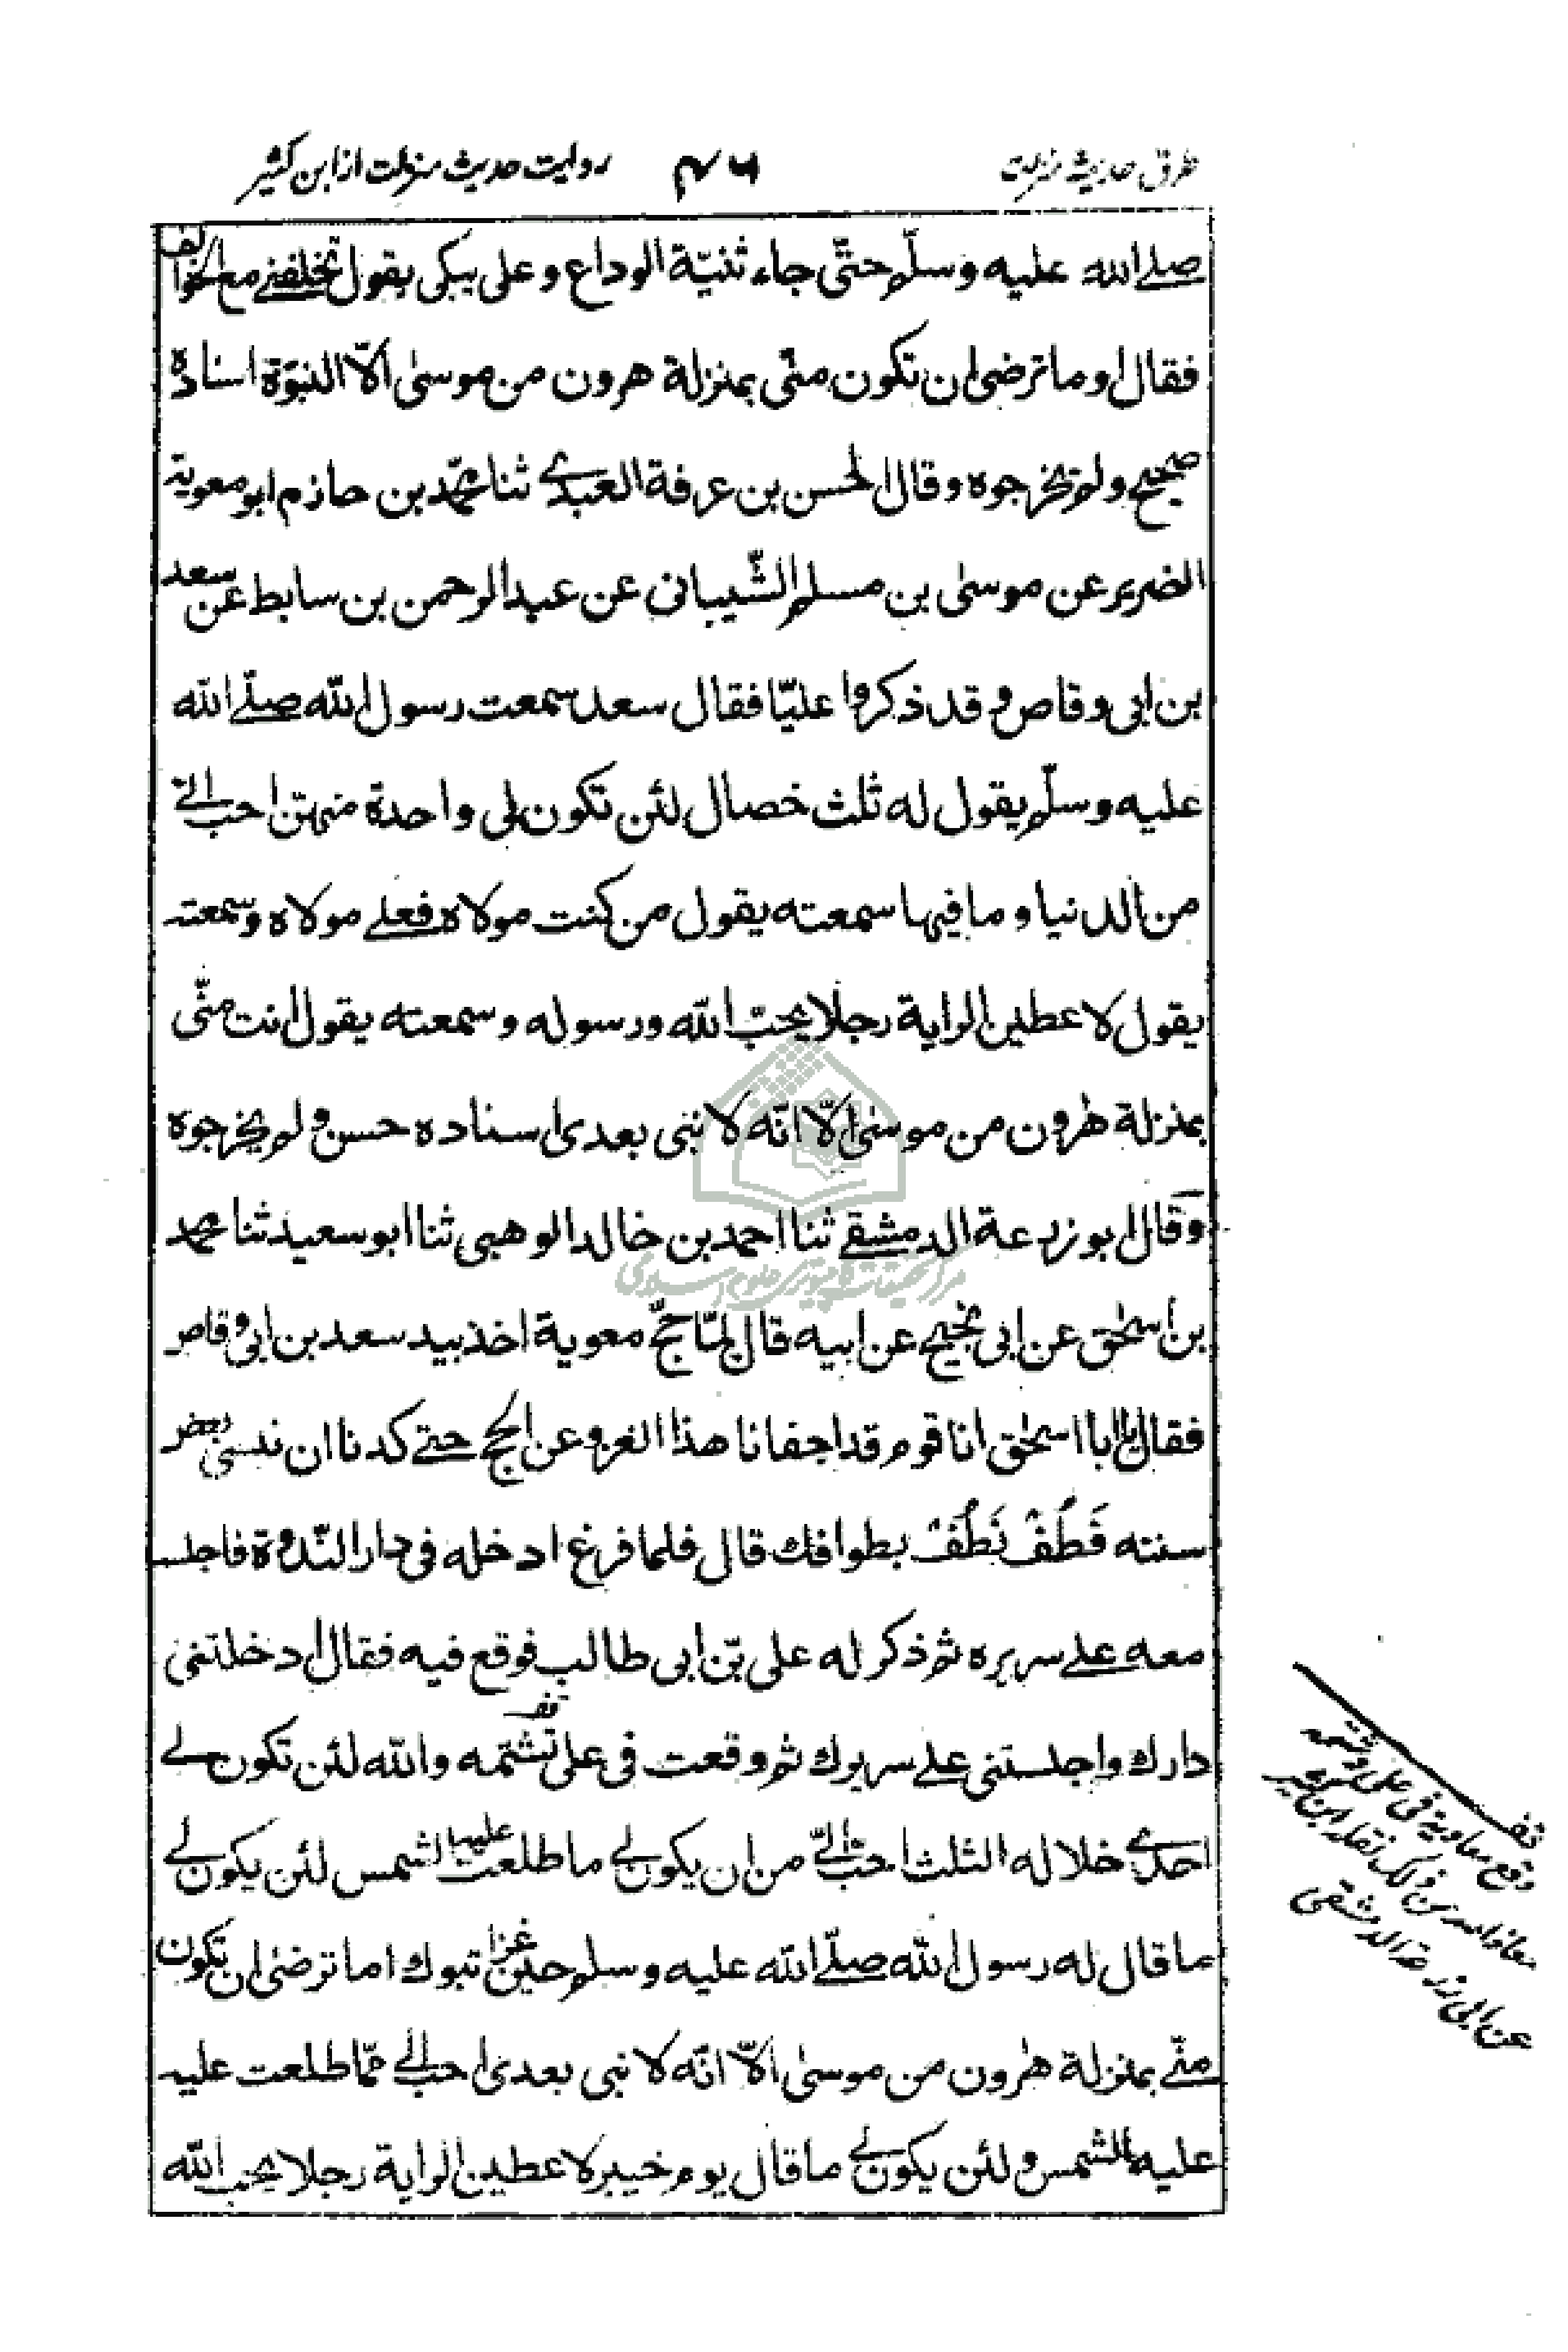 طرق حدیث منزلت ۴۷۶ روایت حدیث منزلت از ابن کثیر
صلے الله علیه وسلّم حتّی جاء ثنیّة الوداع وعلی یبکی یقول تخلفنے مع الخوالف
فقال او ما ترضی ان تکون منّی بمنزلة هرون من موسیٰ الّا النبوّة اسناده
صحیح ولم یخرجوه وقال الحسن بن عرفة العبدے ثنا محمّد بن حازم ابو معویة
الضریر عن موسیٰ بن مسلم الشّیبانی عن عبد الرحمن بن سابط عن سعد
بن ابی وقاص وقد ذکروا علیّا فقال سعد سمعت رسول الله صلّے الله
علیه وسلّم یقول له ثلث خصال لئن تکون لی واحدة منهنّ احب الےّ
من الدنیا وما فیها سمعته یقول من کنت مولاه فعلے مولاه وسمعته
یقول لاعطین الرایة رجلا یحبّ الله ورسوله وسمعته یقول انت منّی
بمنزلة هٰرون من موسیٰ الّا انّه لا نبی بعدی اسناده حسن ولم یخرجوه
وقال ابو زرعة الدمشقے ثنا احمد بن خالد الوهبی ثنا ابو سعید ثنا محمد
بن اسحٰق عن ابی نجیح عن ابیه قال لمّا حجّ معویة اخذ بید سعد بن ابی وقاص
فقال یا ابا اسحٰق انا قوم قد اجفانا هذا الغزو عن الحج حتے کدنا ان ننسی بعض
سننه فَطُفْ نَطُفْ بطوافك قال فلما فرغ ادخله فی دار النّدوة فاجلسه
معه علے سریره ثم ذکر له علی بن ابی طالب فوقع فیه فقال ادخلتنی
قف
دارك واجلستنی علے سریرك ثم وقعت فی علی تشتمه والله لئن تکون لے
احدے خلاله الثلث احبّ الےّ من ان یکون لے ما طلعت علیه الشمس لئن یکون لے
ما قال له رسول الله صلّے الله علیه وسلم حین غزا تبوك اما ترضیٰ ان تکون
منّے بمنزلة هٰرون من موسیٰ الّا انّه لا نبی بعدی احب الےّ ممّا طلعت علیه
علیه الشمس ولئن یکون لے ما قال یوم خیبر لاعطین الرایة رجلا یحب الله
قف
وقع معاویة فی علی وشتمه
معاذ الله من ذلک نقله ابن کثیر
عن ابی زرعة الدمشقی
مرکز تحقیقات کامپیوتری علوم اسلامی